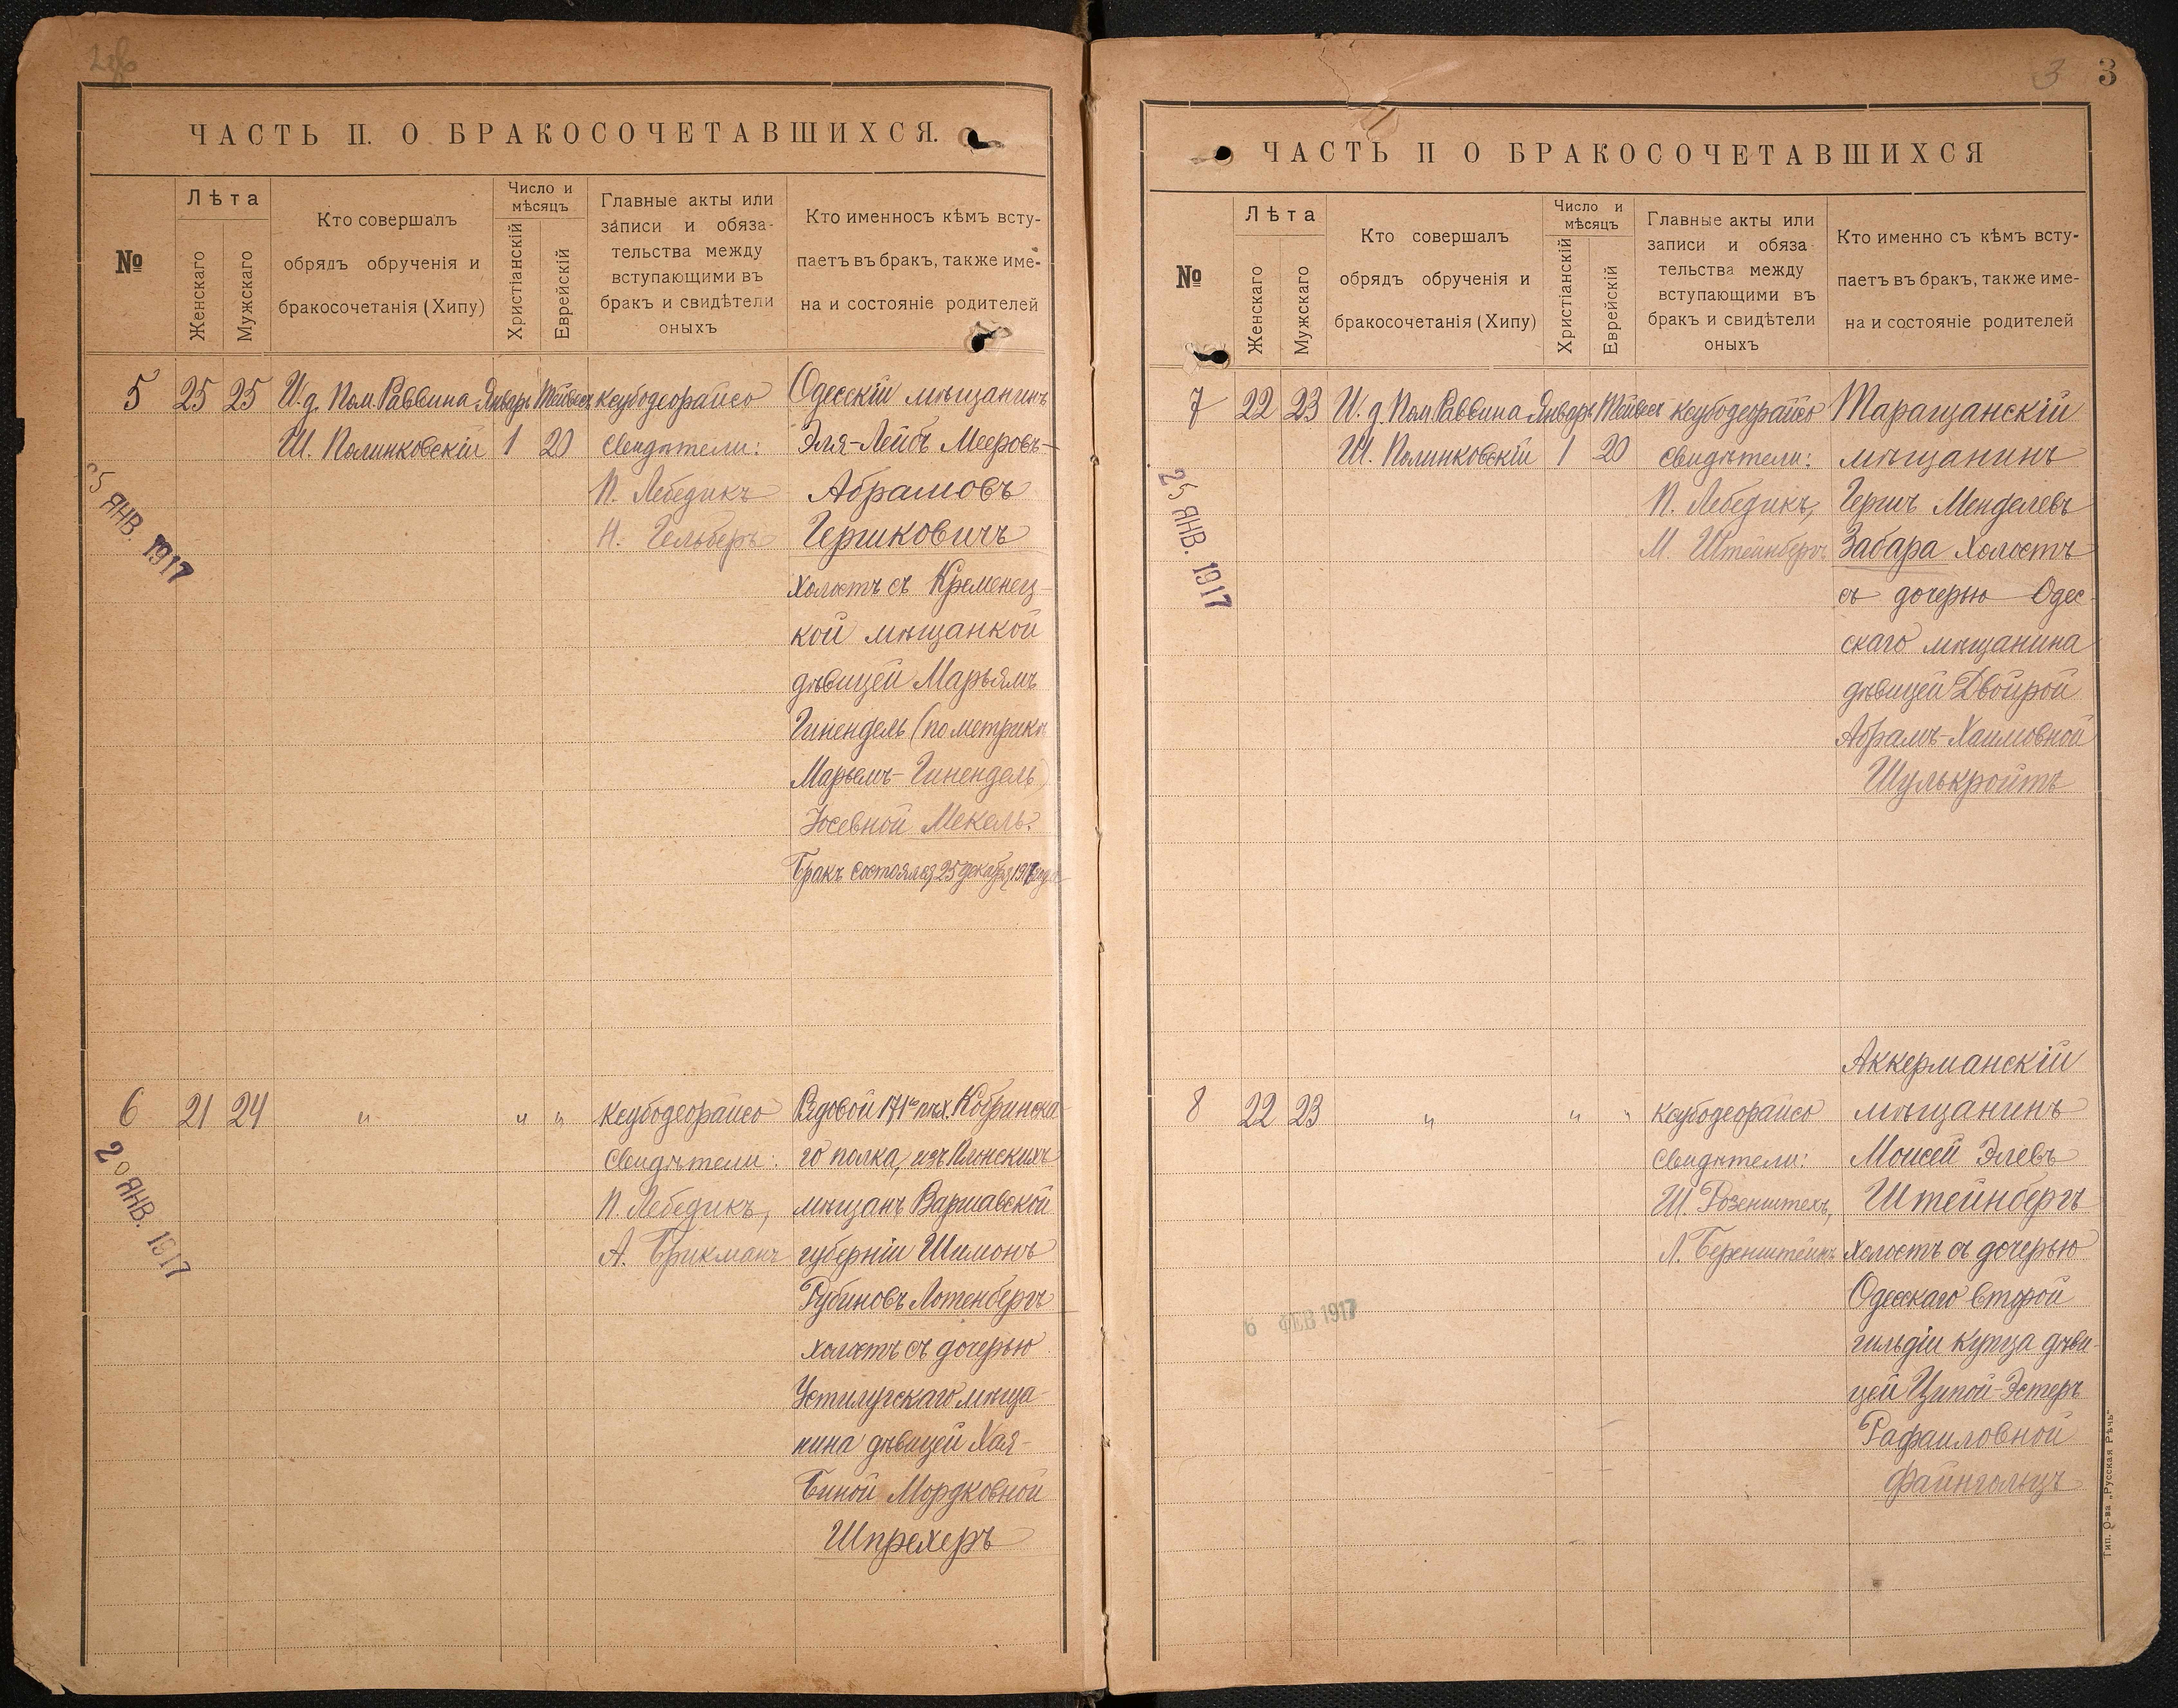 ЧАСТЬ II. О БРАКОСОЧЕТАВШИХСЯ.
№
Лѣта
Женскаго
Мужскаго
Кто совершалъ
обрядъ обрученія и
бракосочетанія (Хипу)
Число и
мѣсяцъ
Христіанскій
Еврейскій
Главные акты или
записи и обяза-
тельства между
вступающими въ
бракъ и свидѣтели
оныхъ
Кто именносъ кѣмъ всту-
паетъ въ бракъ, также име-
на и состояніе родителей
5 25 25 И. д. Пом. Раввина Январь Тейвес Ксубодеорайсо Одесскій мѣщанинъ
Ш. Полинковскій 1 20 Свидѣтели: Эля-Лейбъ Мееровъ-
П. Лебедикъ Абрамовъ
Н. Гельберъ Гершковичъ
холостъ съ Кременец-
кой мѣщанкой
дѣвицей Марьямъ
Гинендель (по метрикѣ
Марьемъ-Гинендель)
Іосевной Мекель.
Бракъ состоялся 25 декабря
25 ЯНВ. 1917
6 21 24 " " " Ксубодеорайсо Рядовой 171го пѣх. Кобринска-
Свидѣтели: го полка, изъ Плонскихъ
П. Лебедикъ, мѣщанъ Варшавской
А. Брикманъ губерніи Шимонъ
Рубиновъ Лотенбергъ
холостъ съ дочерью
Устилугскаго мѣща-
нина дѣвицей Хая-
Биной Мордковной
Шпрехеръ
20 ЯНВ. 1917
3 3
ЧАСТЬ II О БРАКОСОЧЕТАВШИХСЯ
№
Лѣта
Женскаго
Мужскаго
Кто совершалъ
обрядъ обрученія и
бракосочетанія (Хипу)
Число и
мѣсяцъ
Христіанскій
Еврейскій
Главные акты или
записи и обяза-
тельства между
вступающими въ
бракъ и свидѣтели
оныхъ
Кто именно съ кѣмъ всту-
паетъ въ бракъ, также име-
на и состояніе родителей
7 22 23 И. д. Пом. Раввина Январь Тейвес Ксубодеорайсо Таращанскій
Ш. Полинковскій 1 20 Свидѣтели: мѣщанинъ
П. Лебедикъ, Гершъ Менделевъ
М. Штейнбергъ Забара холостъ
съ дочерью Одес-
скаго мѣщанина
дѣвицей Двойрой
Абрамъ-Хаимовной
Шулькройтъ
25 ЯНВ. 1917
Аккерманскій
8 22 23 " " " Ксубодеорайсо мѣщанинъ
Свидѣтели: Моисей Элевъ
Ш. Штейнбергъ
Л. Беренштейнъ холостъ съ дочерью
Одесскаго второй
гильдіи купца дѣви-
цей Ципой-Эстеръ
Рафаиловной
Файнгольцъ
6 ФЕВ 1917
Тип. О-ва „Русская Рѣчь"